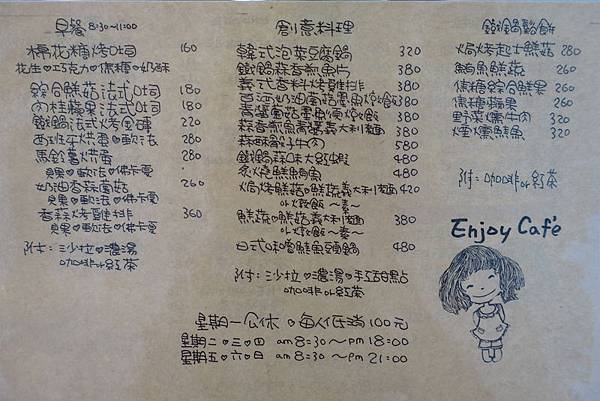 早餐 8:30~11:00
棉花糖烤吐司 160
花生♡巧克力♡焦糖♡奶酥
綜合鮮菇法式吐司 180
肉桂蘋果法式吐司 180
鐵鍋法式烤金磚 220
西班牙烘蛋♡軟法 280
馬鈴薯烘蛋 280
貝果♡軟法♡佛卡夏
奶油香蒜菌菇 260
貝果♡軟法♡佛卡夏
香蒜烤雞排 360
貝果♡軟法♡佛卡夏
附：沙拉♡濃湯
咖啡or紅茶
創意料理
韓式泡菜豆腐鍋 320
鐵鍋蒜香魚片 380
義式香料烤雞排 380
奶油南菇墨魚燉飯 380
青醬菌菇墨魚燉飯 380
蒜香魚青醬義大利麵 380
麻辣骰子牛肉 580
鐵鍋蒜味大紅蝦 480
炙燒鮮鮪魚 480
焗烤鮮菇♡鮮蔬義大利麵 420
or燉飯～素～
鮮菇♡鮮蔬義大利麵 380
or燉飯～素～
日式味噌鮮魚頭鍋 480
附：沙拉♡濃湯♡手工甜點
咖啡or紅茶
鐵鍋鬆餅
焗烤起士鮮菇 280
鮪魚鮮蔬 260
焦糖綜合鮮果 260
焦糖蘋果 260
野菜燻牛肉 320
煙燻鮮魚 320
附：咖啡or紅茶
Enjoy Café
星期一公休♡每人低消100元
星期二♡三♡四 am 8:30～pm 18:00
星期五♡六♡日 am 8:30～pm 21:00